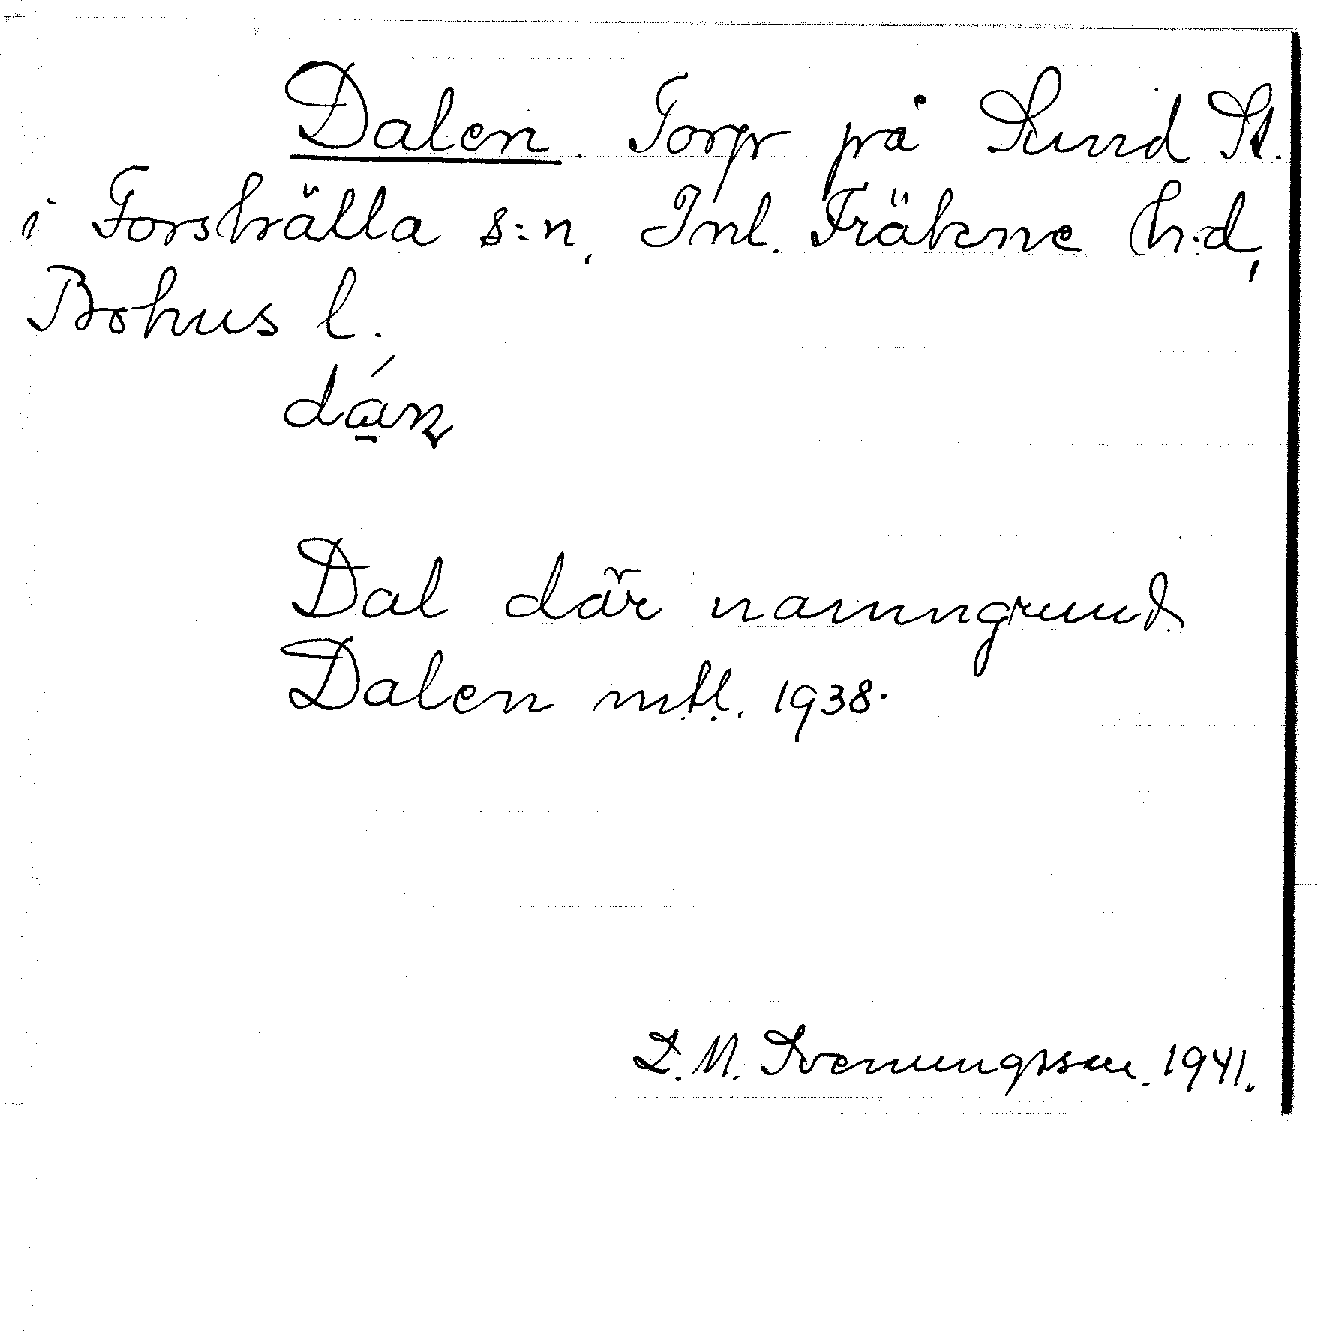 Dalen. Torp på Sund St.
i Forshälla s:n, Inl. Fräkne h:d,
Bohus l.
dán
Dal där namngrund
Dalen mtl. 1938.
S. M. Svenungsson. 1941.